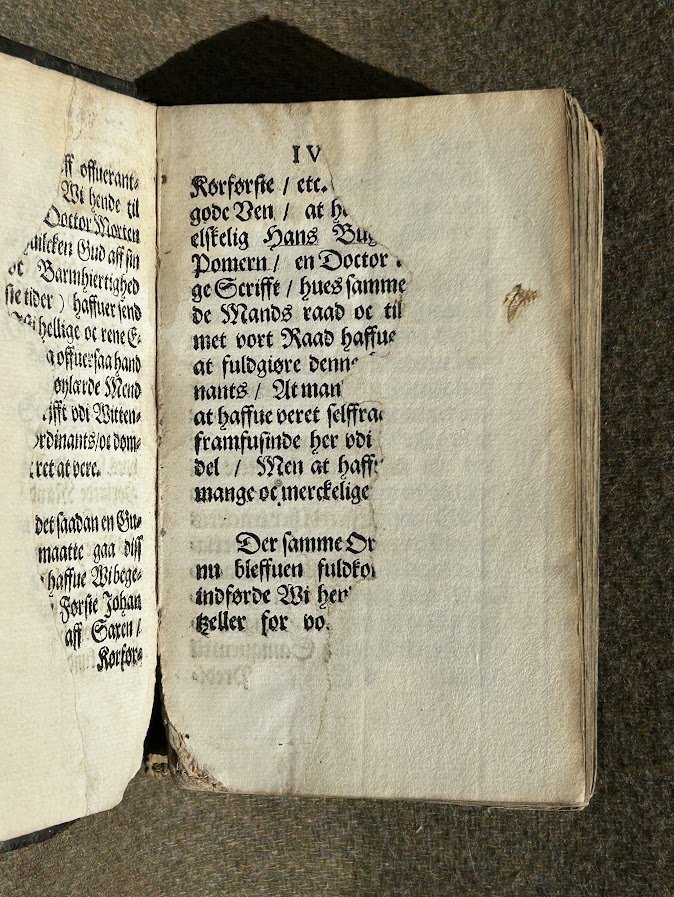 aff offuerant⸗
Wi hende til
Doctor Morten
huilcken Gud aff sin
oc Barmhiertighed
ste tider ) haffuer send
hellige oc rene E⸗
offuersaa hand
øylærde Mend
rifft vdi Witten⸗
Ordinants/ oc dom⸗
ret at vere.
det saadan en Gu⸗
maatte gaa diss
haffue Wi bege⸗
Første Johan
aff Saxen /
Kørfør⸗
IV
Kørførste / etc.
gode Ven / at h
elskelig Hans Bug
Pomern / en Doctor
ge Scrifft / hues samme
de Mands raad oc til
met vort Raad haffue
at fuldgiøre denne
nants / At man
at haffue veret selffraa
framfusinde her vdi
del / Men at haff
mange oc merckelige
Der samme Or
nu bleffuen fuldko
indførde Wi her
tzeller for vo